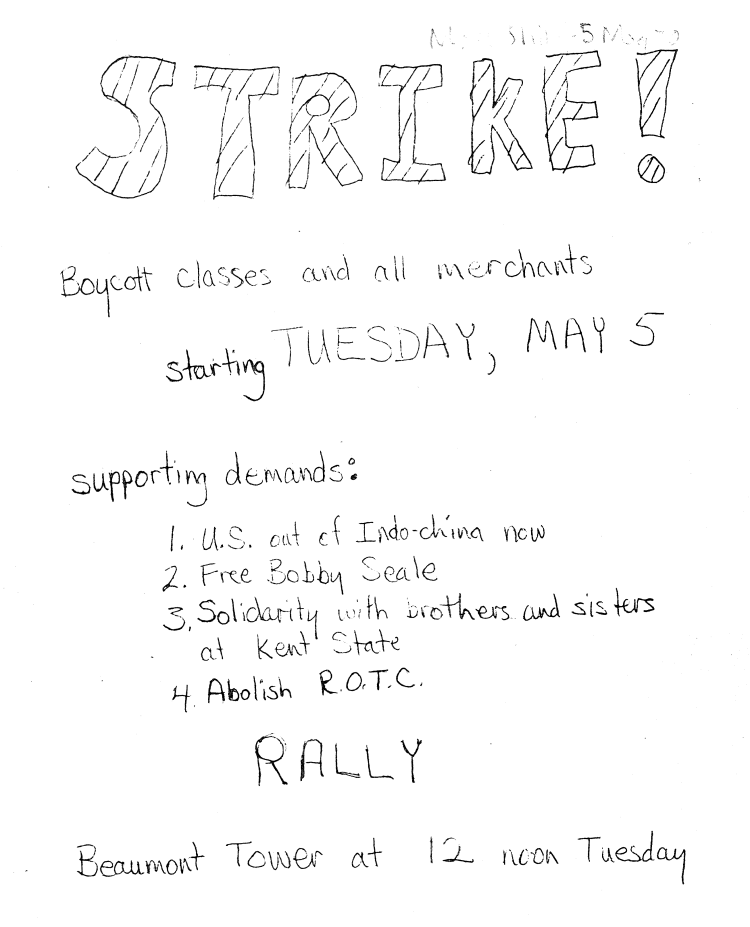 5 May 70
STRIKE!
Boycott classes and all merchants
starting TUESDAY, MAY 5
supporting demands:
1. U.S. out of Indo-china now
2. Free Bobby Seale
3. Solidarity with brothers and sisters
at Kent State
4. Abolish R.O.T.C.
RALLY
Beaumont Tower at 12 noon Tuesday